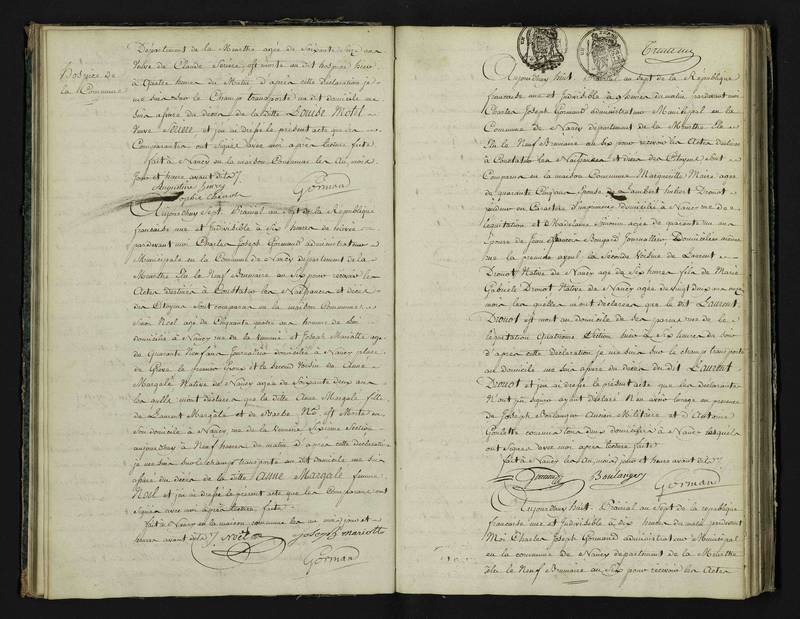 Département de la Meurthe agée de Soixante Seize ans
Veuve de Claude est morte au dit hospice hier
à Quatre heures du Matin d'après cette déclaration je
me suis sur le Champ transporté au dit domicile me
Suis assuré du décès de laditte Louise Motel
Veuve et j'ai dressé le présent acte que les
Comparantes ont Signé avec moi après lecture faite
fait à Nancy en la maison Commune les An, mois
Jour et heure avant dits
Hospice de
la Commune
Gormand
Aujourdhuy Sept Prairial an Sept de la République
française une et Indivisible à Six heures de
pardevant moi Charles Joseph Gormand administrateur
Municipal en la Commune de Nancy département de la
Meurthe Elu le Neuf Brumaire an Six pour recevoir les
Actes destinés à Constater les Naissances et décès
des Citoyens Sont comparus en la maison Commune
Noel agé de Cinquante quatre ans
domicilié à Nancy rue de la et Joseph Mariotte agé
de Quarante Neuf ans Journalier domicilié à Nancy place
de Grève le premier Epoux et le Second Voisin de Anne
Margale Native de Nancy agée de Soixante deux ans
lesquels m'ont déclaré que la ditte Anne Margale fille
de Laurent Margale et de Barbe est Morte en
Son domicile à Nancy rue de la Sixieme Section
aujourdhuy à Neuf heures du matin d'après cette déclaration
je me suis Sur le champ transporté au dit domicile me suis
assuré du décès de la ditte Anne Margale femme
Noel et j'ai dressé le présent acte que les Comparans ont
Signé avec moi après lecture faite
fait à Nancy en la maison commune les an mois jour et
heures avant dits
Joseph mariotte
Gormand
Aujourdhuy huit Prairial an Sept de la République
française une et Indivisible à heures du matin pardevant moi
Charles Joseph Gormand administrateur Municipal en la
Commune de Nancy département de la Meurthe Elu
le Neuf Brumaire an six pour recevoir les Actes destinés
à Constater les Naissances et décès des Citoyens Est
Comparu en la maison Commune Marguerite Maire agée
de quarante Epouse de Lambert hubert Drouot
domicilié à Nancy rue de
législation et Madelaine Simonin agée de quarante un ans
épouse de Jean Bongard Journallier Domiciliées même
rue la premiere ayeul la Seconde Voisine de Laurent
Drouot Native de Nancy agé de Six heures fils de Marie
Gabriele Drouot Native de Nancy agée de Vingt deux ans
lesquelles m'ont déclarées que le dit Laurent
Drouot est mort au domicile de Ses parens rue de la
législation Quatrieme Section hier à Six heures du Soir
d'après cette déclaration je me suis Sur le champ transporté
au domicile me suis assuré du décès du dit Laurent
Drouot et j'ai dressé le présent acte que les déclarantes
N'ont pu signer ayant déclaré N'en avoir l'usage en presence
de Joseph Boulanger Ancien Militaire et d'Antoine
domiciliés à Nancy lesquels
ont Signés avec moi après lecture faite
fait à Nancy les An, mois, jour et heures avant dits
Boulanger
Gormand
Aujourdhuy huit Prairial an Sept de la republique
française une et Indivisible à dix heures du matin pardevant
Moi Charles Joseph Gormand administrateur Municipal
en la commune de Nancy departement de la Meurthe
élu le Neuf Brumaire an Six pour recevoir les Actes